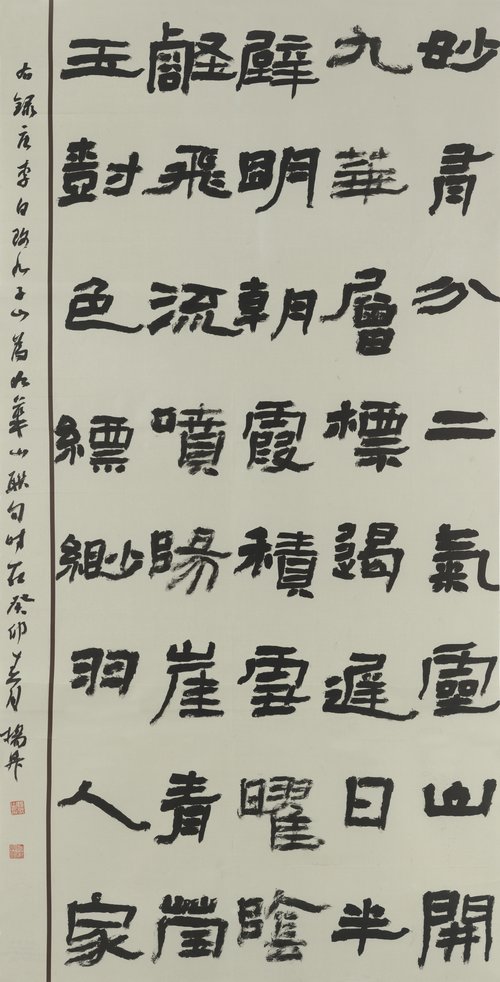 妙有分二氣靈山開
九華層標遏遲日半
壁明朝霞積雪曜陰
壑飛流噴陽崖青瑩
玉樹色縹緲羽人家
右錄唐李白改九子山為九華山聯句時在癸卯月楊